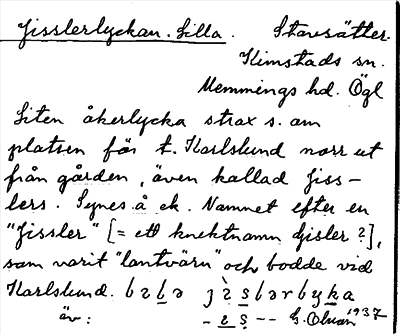 Jisslerlyckan. Lilla. Stavsätter.
Kimstads sn.
Memmings hd. Ögl
Liten åkerlycka strax s. om
platsen för t. Karlslund norr ut
från gården, även kallad Jiss-
lers. Synes å ek. Namnet efter en
"Jissler" [= ett knektnamn Gisler?],
som varit "lantvärn" och bodde vid
Karlslund.
äv: 1937